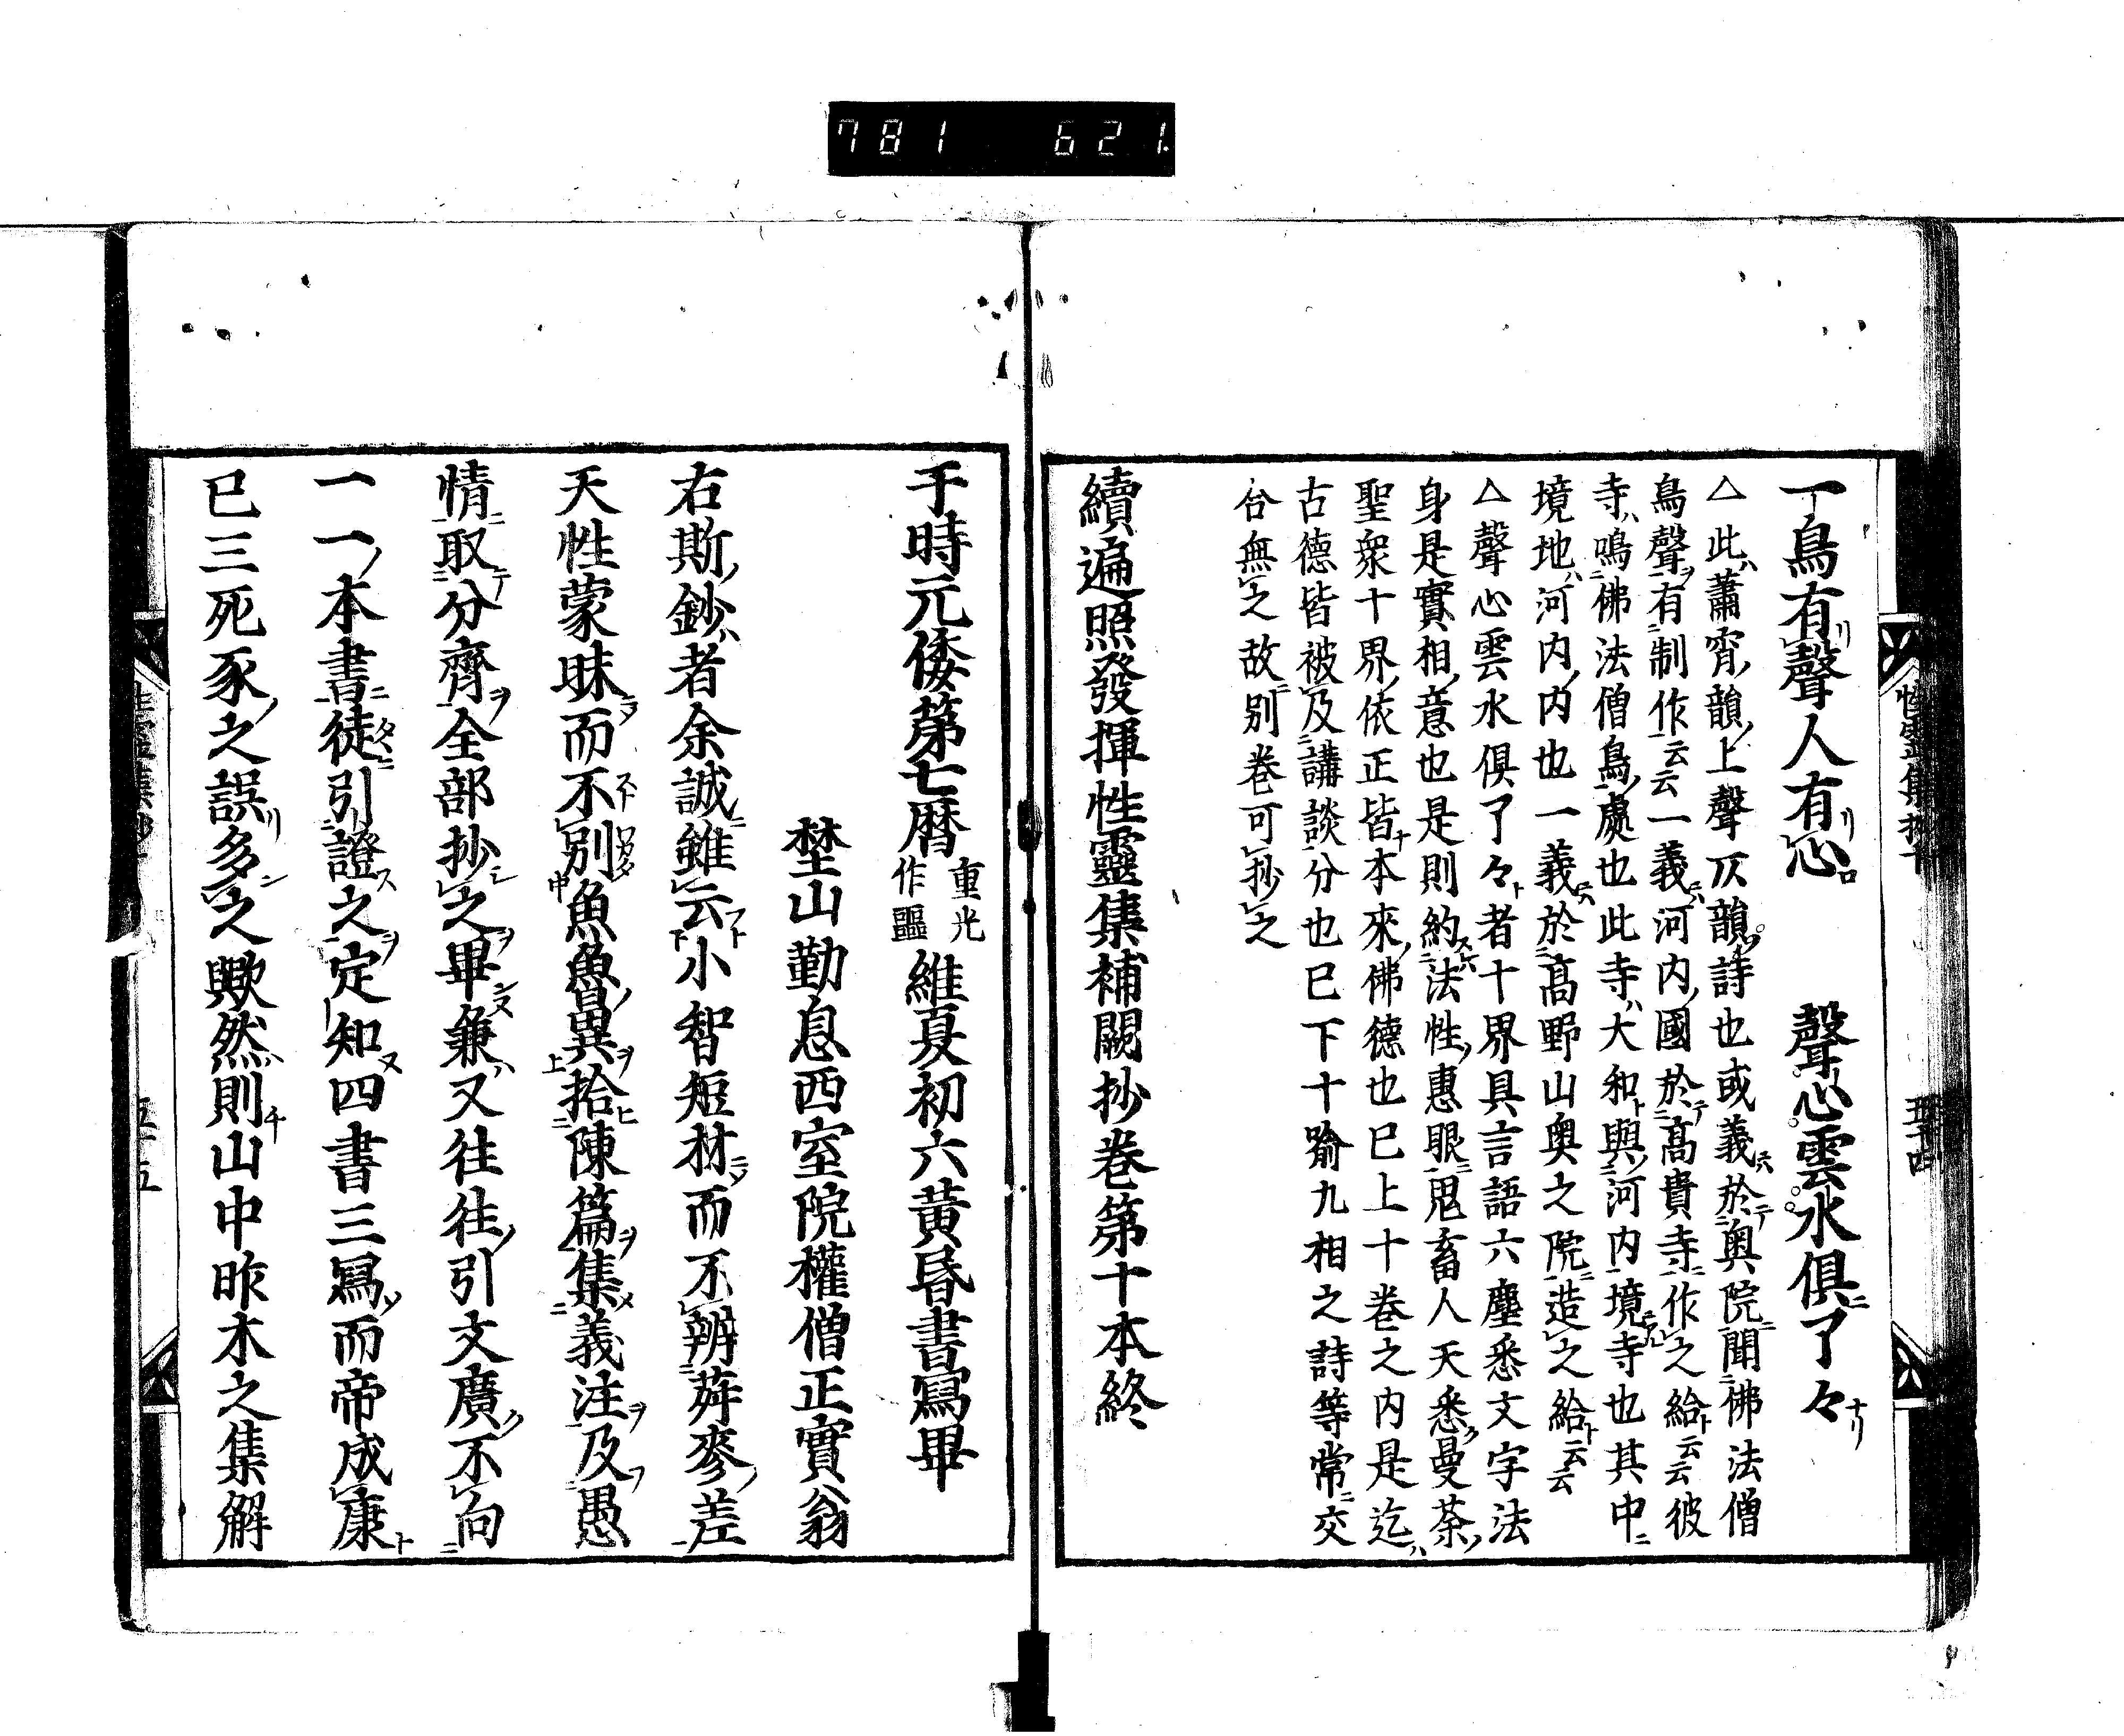 781 621.
一鳥有聲人有心 聲心雲水俱了々
△此蕭宵韻上聲仄韻詩也或義於奧院聞佛法僧
鳥聲有制作云云一義河内國於高貴寺作之給云云彼
寺鳴佛法僧鳥處也此寺大和與河内境寺也其中
境地河内内也一義於高野山奧之院造之給云云
△聲心雲水俱了々者十界具言語六塵悉文字法
身是實相意也是則約法性惠眼鬼畜人天悉曼荼
聖衆十界依正皆本來佛德也已上十卷之内是迄
古德皆被及講談分也已下十喻九相之詩等常交
合無之故別卷可抄之
續遍照發揮性靈集補闕抄卷第十本終
性靈集抄十
五十四
于時元倭第七曆重光作噩維夏初六黃昏書寫畢
埜山勤息西室院權僧正實翁
右斯鈔者余誠雖云小智短材而不辨菽麥差
天性蒙昧而不別魚魯異拾陳篇集義注及愚
情取分齊全部抄之畢兼又往往引文廣不向
一一本書徒引證之定知四書三寫而帝成康
已三死豕之誤多之歟然則山中昨木之集解
五十五